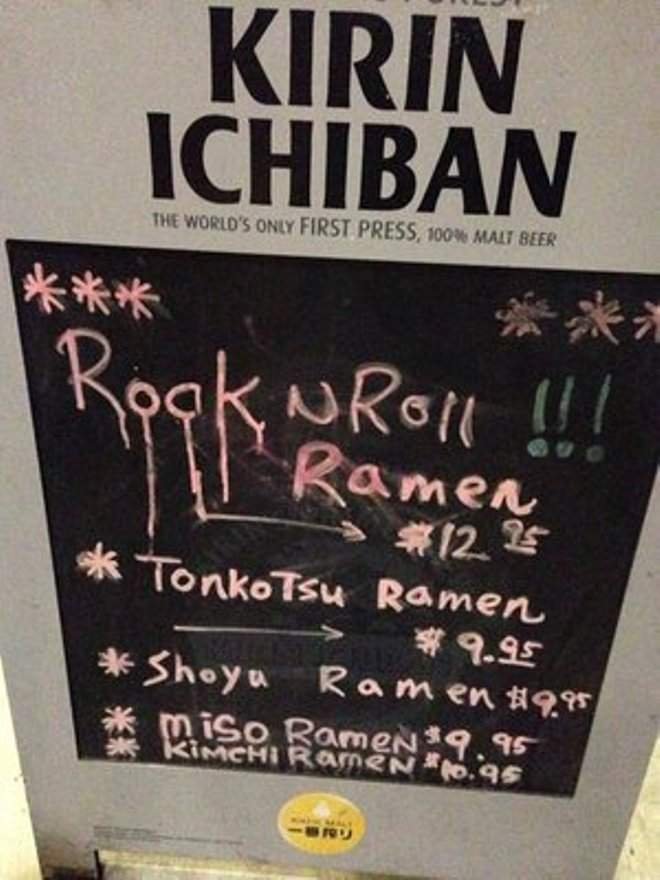 KIRIN
ICHIBAN
THE WORLD'S ONLY FIRST PRESS, 100% MALT BEER
*** ***
Rock N Roll !!!
Ramen
→ $12 95
* TonkoTsu Ramen
→ $9.95
* Shoyu Ramen $9.95
* miso Ramen $9.95
* KIMCHI Ramen $10.95
一番搾り